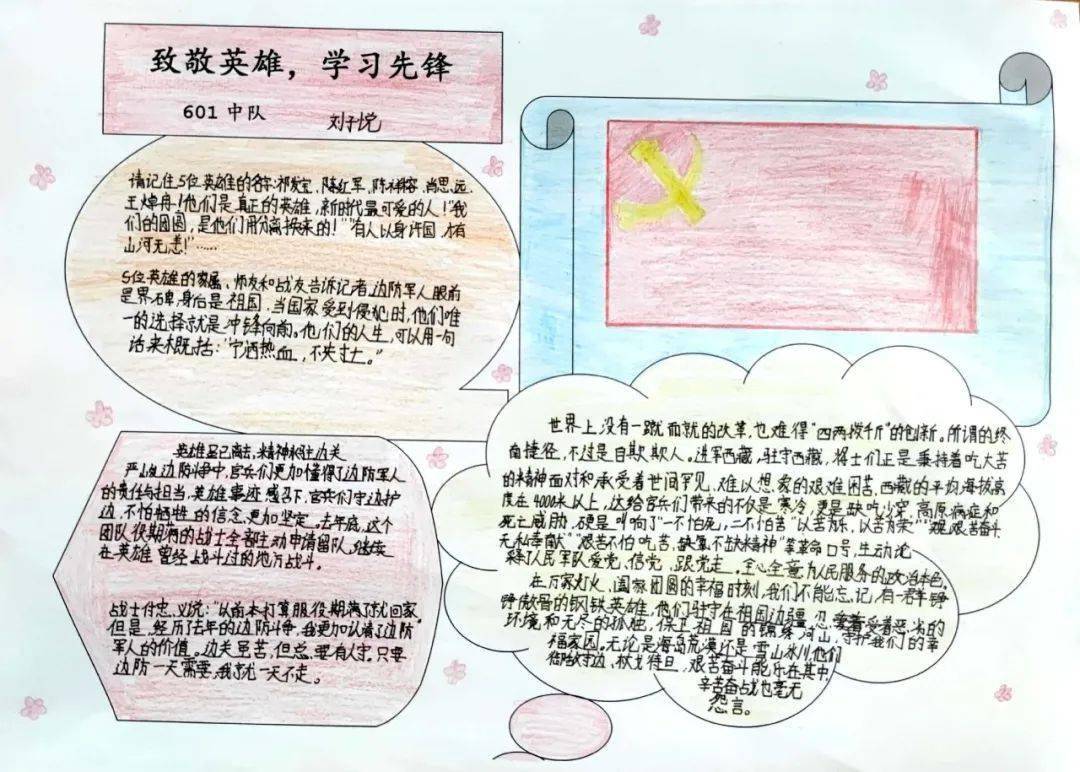 致敬英雄，学习先锋
601 中队
刘子悦
请记住5位英雄的名字:祁发宝、陈红军、陈祥榕、肖思远、
王焯冉!他们是真正的英雄,新时代最可爱的人!"我
们的团圆,是他们用分离换来的!""有人以身许国,才有
山河无恙!"……
5位英雄的家属、师友和战友告诉记者,边防军人眼前
是界碑,身后是祖国。当国家受到侵犯时,他们唯
一的选择就是冲锋向前。他们的人生,可以用一句
话来概括:"宁洒热血,不失寸土。"
英雄虽已离去,精神永驻边关
严峻的边防斗争中,官兵们更加懂得了边防军人
的责任与担当。英雄事迹感召下,官兵们守边护
边、不怕牺牲的信念更加坚定。去年底,这个
团队役期满的战士全部主动申请留队,继续
在英雄曾经战斗过的地方战斗。
战士付忠义说:"以前本打算服役期满了就回家
但是,经历了去年的边防斗争,我更加认清了边防
军人的价值。边关虽苦,但总要有人守。只要
边防一天需要,我就一天不走。
世界上,没有一蹴而就的改革,也难得"四两拨千斤"的创新。所谓的终
南捷径,不过是自欺欺人。进军西藏,驻守西藏,将士们正是秉持着吃大苦
的精神面对和承受着世间罕见、难以想象的艰难困苦。西藏的平均海拔高
度在4000米以上,这给官兵们带来的不仅是寒冷,更是缺吃少穿、高原病症和
死亡威胁,硬是叫响了"一不怕死,二不怕苦""以苦为乐、以苦为荣""艰苦奋斗
无私奉献""艰苦不怕吃苦,缺氧不缺精神"等革命口号,生动诠
释了人民军队爱党、信党、跟党走,全心全意为人民服务的政治本色。
在万家灯火、阖家团圆的幸福时刻,我们不能忘记,有一群铮
铮傲骨的钢铁英雄,他们驻守在祖国边疆,忍受着恶劣的
环境和无尽的孤独,保卫祖国的锦绣河山,守护我们的幸
福家园。无论是海岛荒漠还是雪山冰川他们
御敌守边、枕戈待旦,艰苦奋斗能乐在其中
辛苦奋战也毫无
怨言。